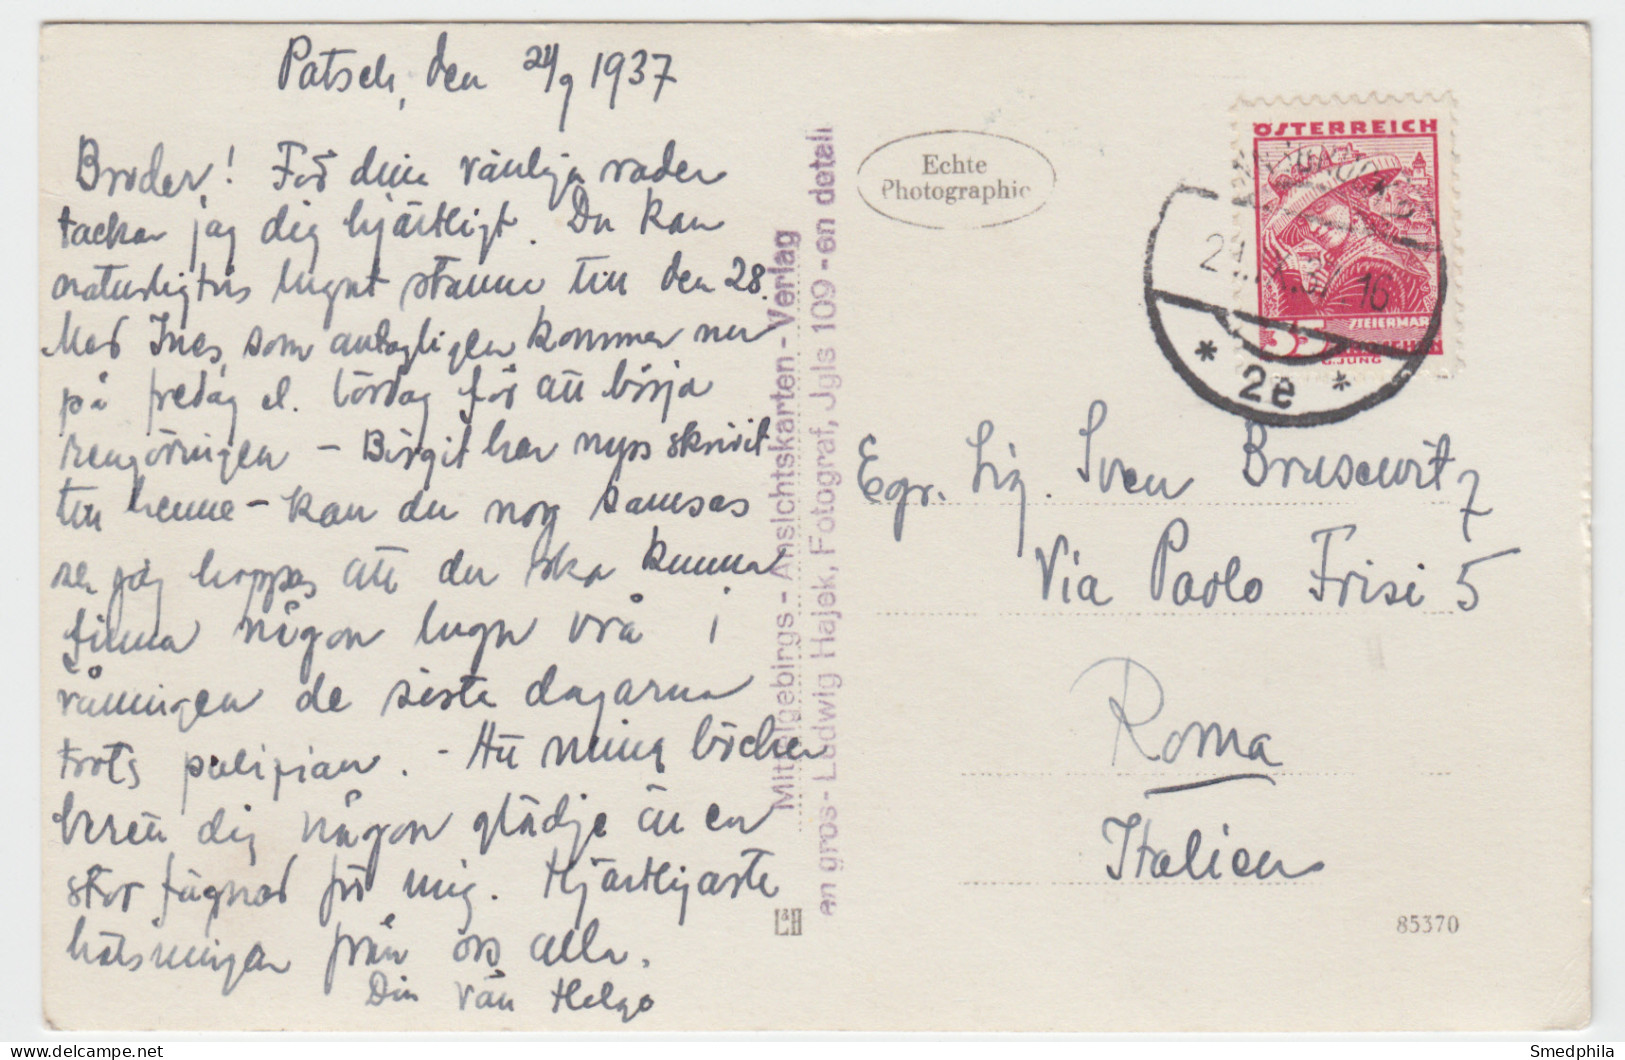 Patsch, den 21/9 1937
Broder! För dina vänliga rader
tackar jag dig hjärtligt. Du kan
naturligtvis lugnt stanna till den 28.
Med Ines, som antagligen kommer ner
på fredag el. lördag för att börja
rengöringen – Birgit har nyss skrivit
till henne – kan du nog samsas
jag hoppas att du ska kunna
finna någon lugn vrå i
våningen de sista dagarna
trots pulizian. – Att mina böcker
berett dig någon glädje är en
stor fägnad för mig. Hjärtligaste
hälsningar från oss alla.
Din vän Helge
Mittelgebirgs - Ansichtskarten - Verlag
en gros - Ludwig Hajek, Fotograf, Jgls 109 - en detail
Echte
Photographie
ÖSTERREICH
STEIERMARK
35 GROSCHEN
G. JUNG
21.IX.37 16
* 2e *
Egr. Sig. Sven Brusewitz
Via Paolo Frisi 5
Roma
Italien
L&H
85370
Smedphila